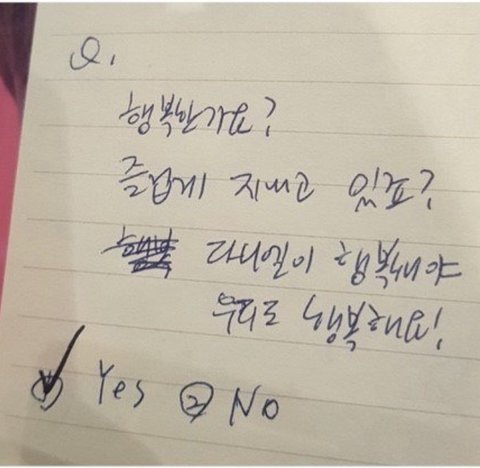 Q.
행복한가요?
즐겁게 지내고 있죠?
다니엘이 행복해야
우리도 행복해요!
① Yes ② No